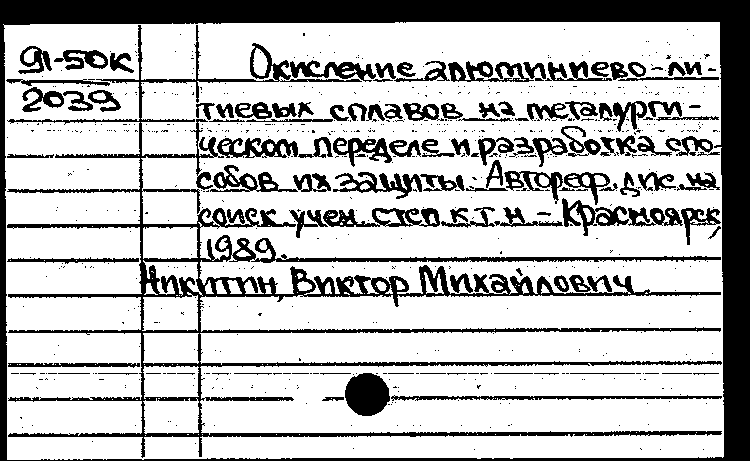 91-50к
2039
Окисление алюминиево-ли-
тиевых сплавов на металурги-
ческом переделе и разработка спо-
собов их защиты. Автореф. дис. на
соиск учен. степ к.т.н - Красноярск,
1989.
Никитин, Виктор Михайлович